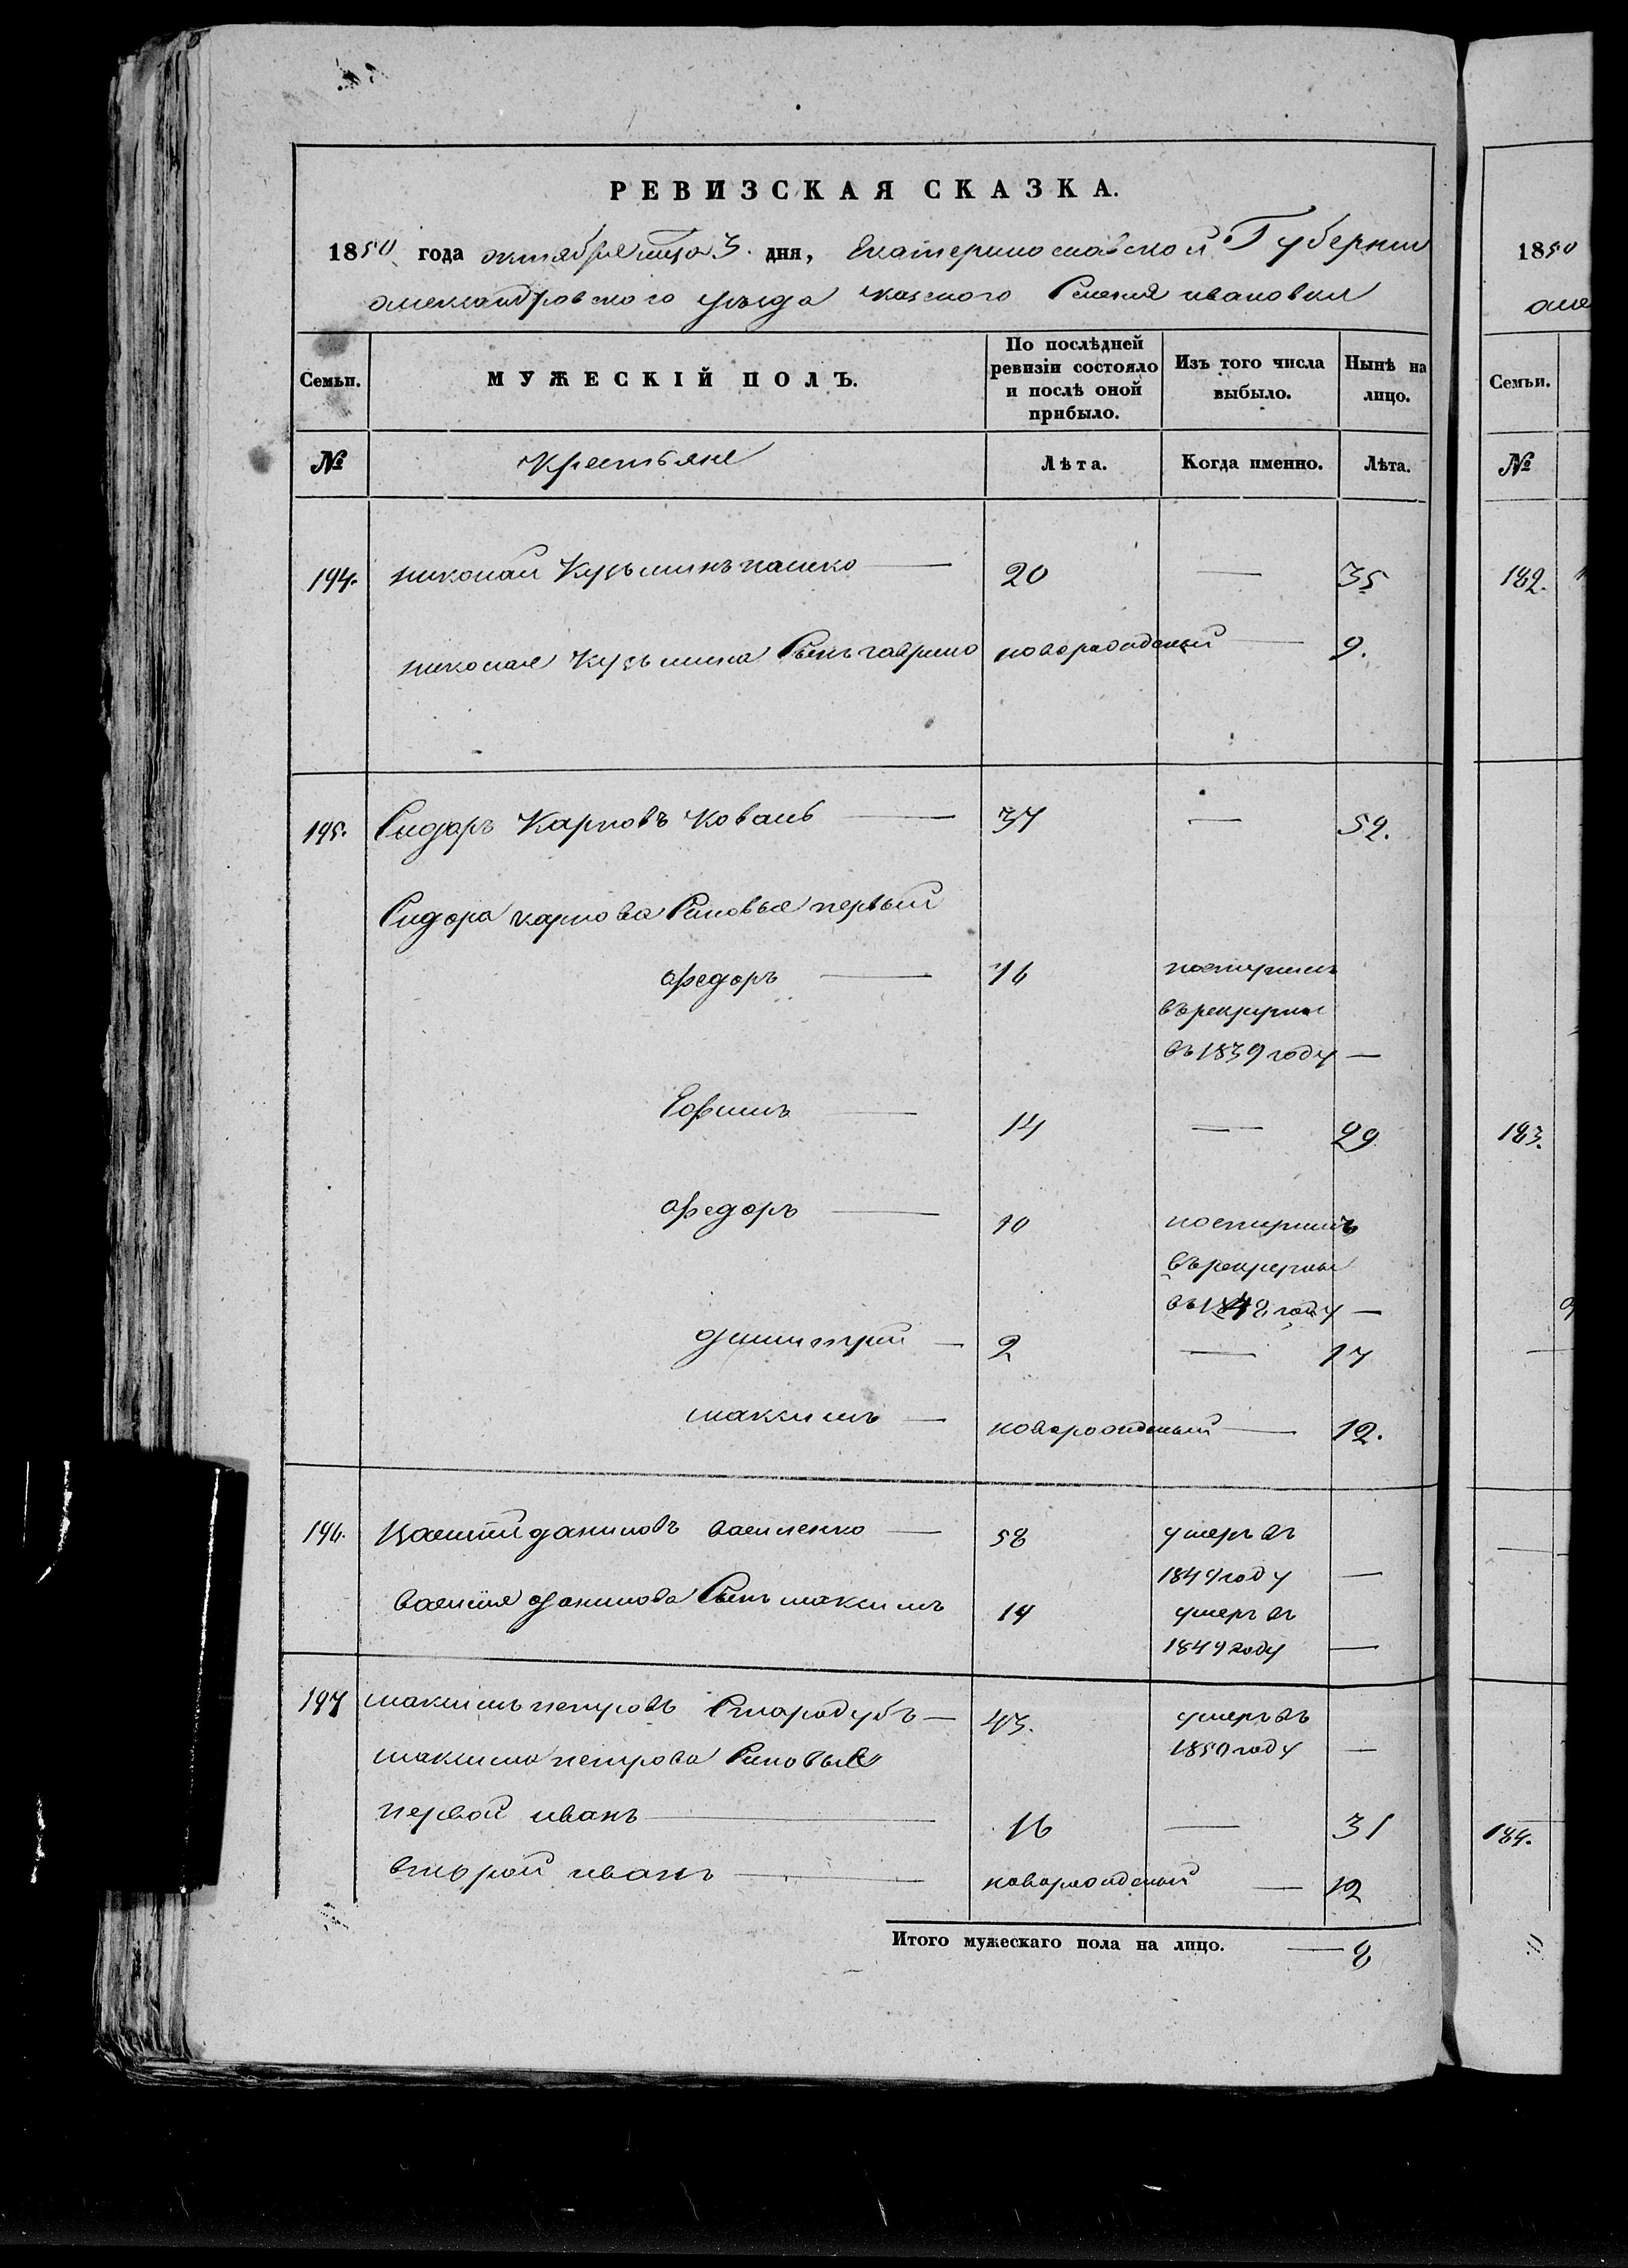 РЕВИЗСКАЯ СКАЗКА.
1850 года октября мца 3 дня, Екатеринославской Губернии
александровского уезда казеного Селения ивановки
Семьи. МУЖЕСКІЙ ПОЛЪ. По послѣдней ревизіи состояло и послѣ оной прибыло. Изъ того числа выбыло. Нынѣ на лицо.
№ Крестьяне Лѣта. Когда именно. Лѣта.
194. николай Кузьминъ пашко — 20 — 35
николая Кузьмина Сынъ гаврило новорожденый — 9.
195. Сидоръ Карповъ Коваль — 37 — 52.
Сидора карпова Сыновья первый
федоръ — 16 поступилъ
въ рекруты
въ 1839 году —
Ефимъ — 14 — 29
федоръ — 10 поступилъ
въ рекруты
въ 1848 году —
дмитрий — 2 — 17
максимъ — новорожденый — 12.
196. Василий даниловъ василенко — 58 умеръ въ
1849 году —
василия данилова Сынъ максимъ 14 умеръ въ
1849 году —
197 максимъ петровъ Стародубъ — 43. умеръ въ
1850 году —
максима петрова Сыновья
первой иванъ — 16 — 31
второй иванъ — новорожденый — 12
Итого мужескаго пола на лицо. — 8
1850
але
Семьи.
№
182.
183.
184.